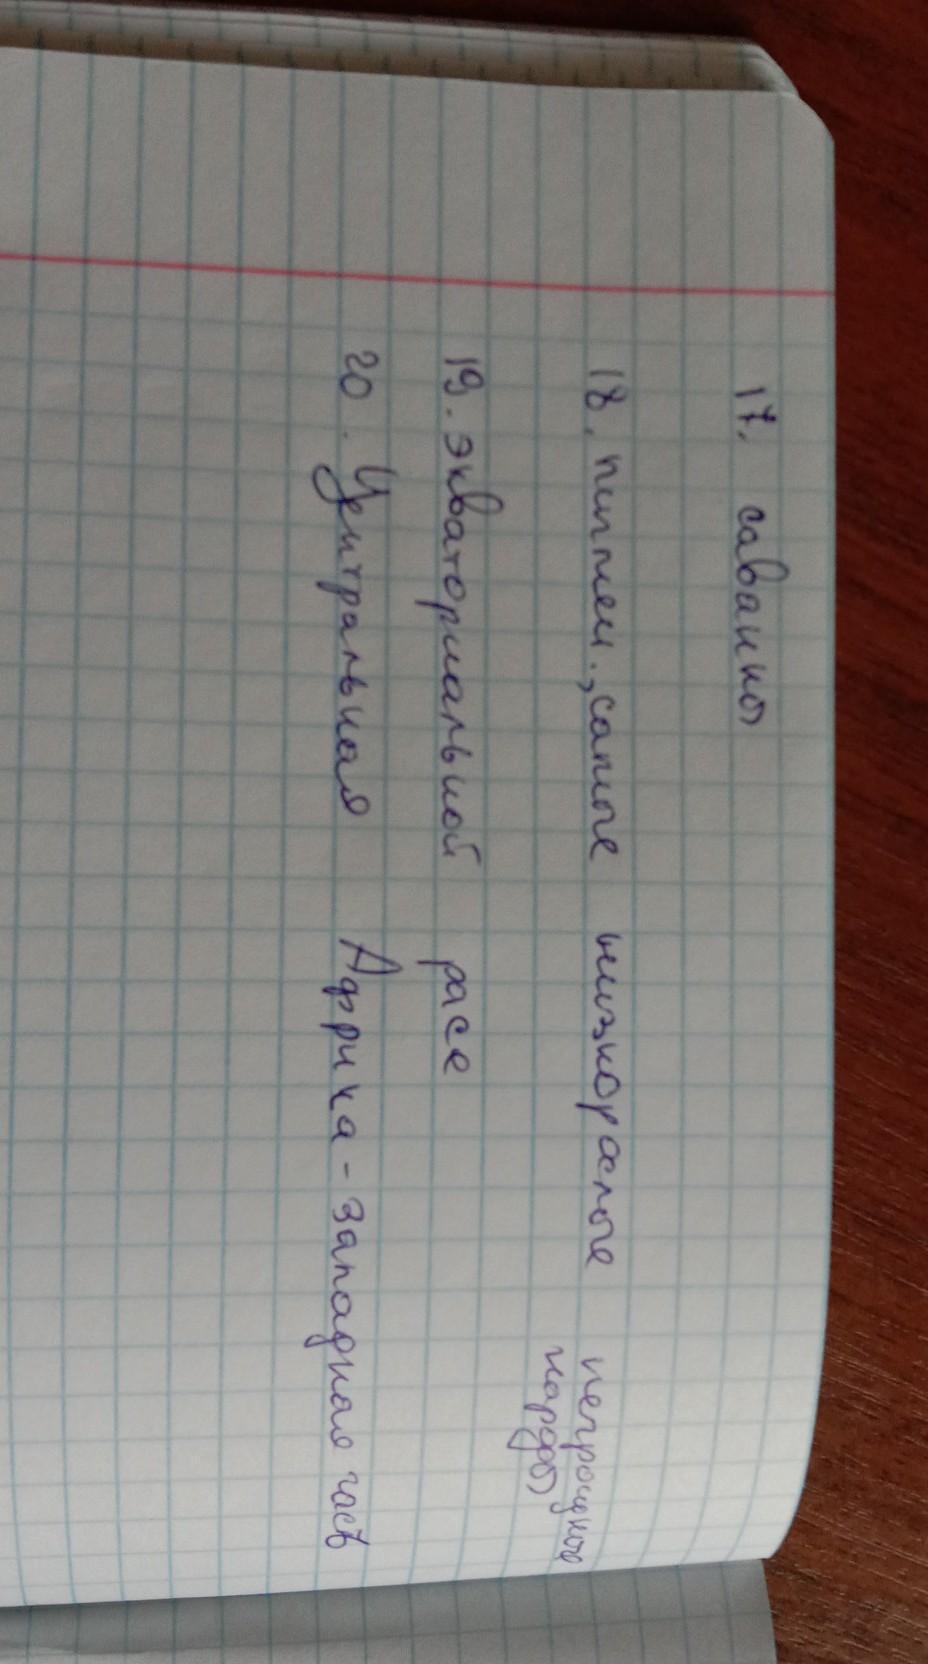 17. саванны
18. пигмеи., самые низкорослые негроидные
нарды
19. экваториальной расе
20. Центральная Африка - западная часть